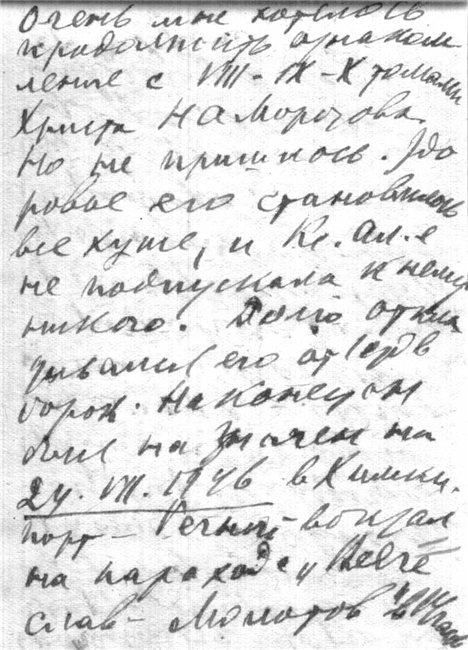 Очень мне хотелось
продолжить ознаком-
ление с VIII-IX-X томами
Христа Н А Морозова.
Но не пришлось. Здо
ровье его становилось
все хуже, и Кс. Ал. е
не подпускала к нему
никого. Долго откла
дывался его отъезд в
борок. Наконец он
был назначен на
24. VII. 1946 в Химки.
порт - Речной вокзал
на пароходе „Вяче
слав - Молотов"